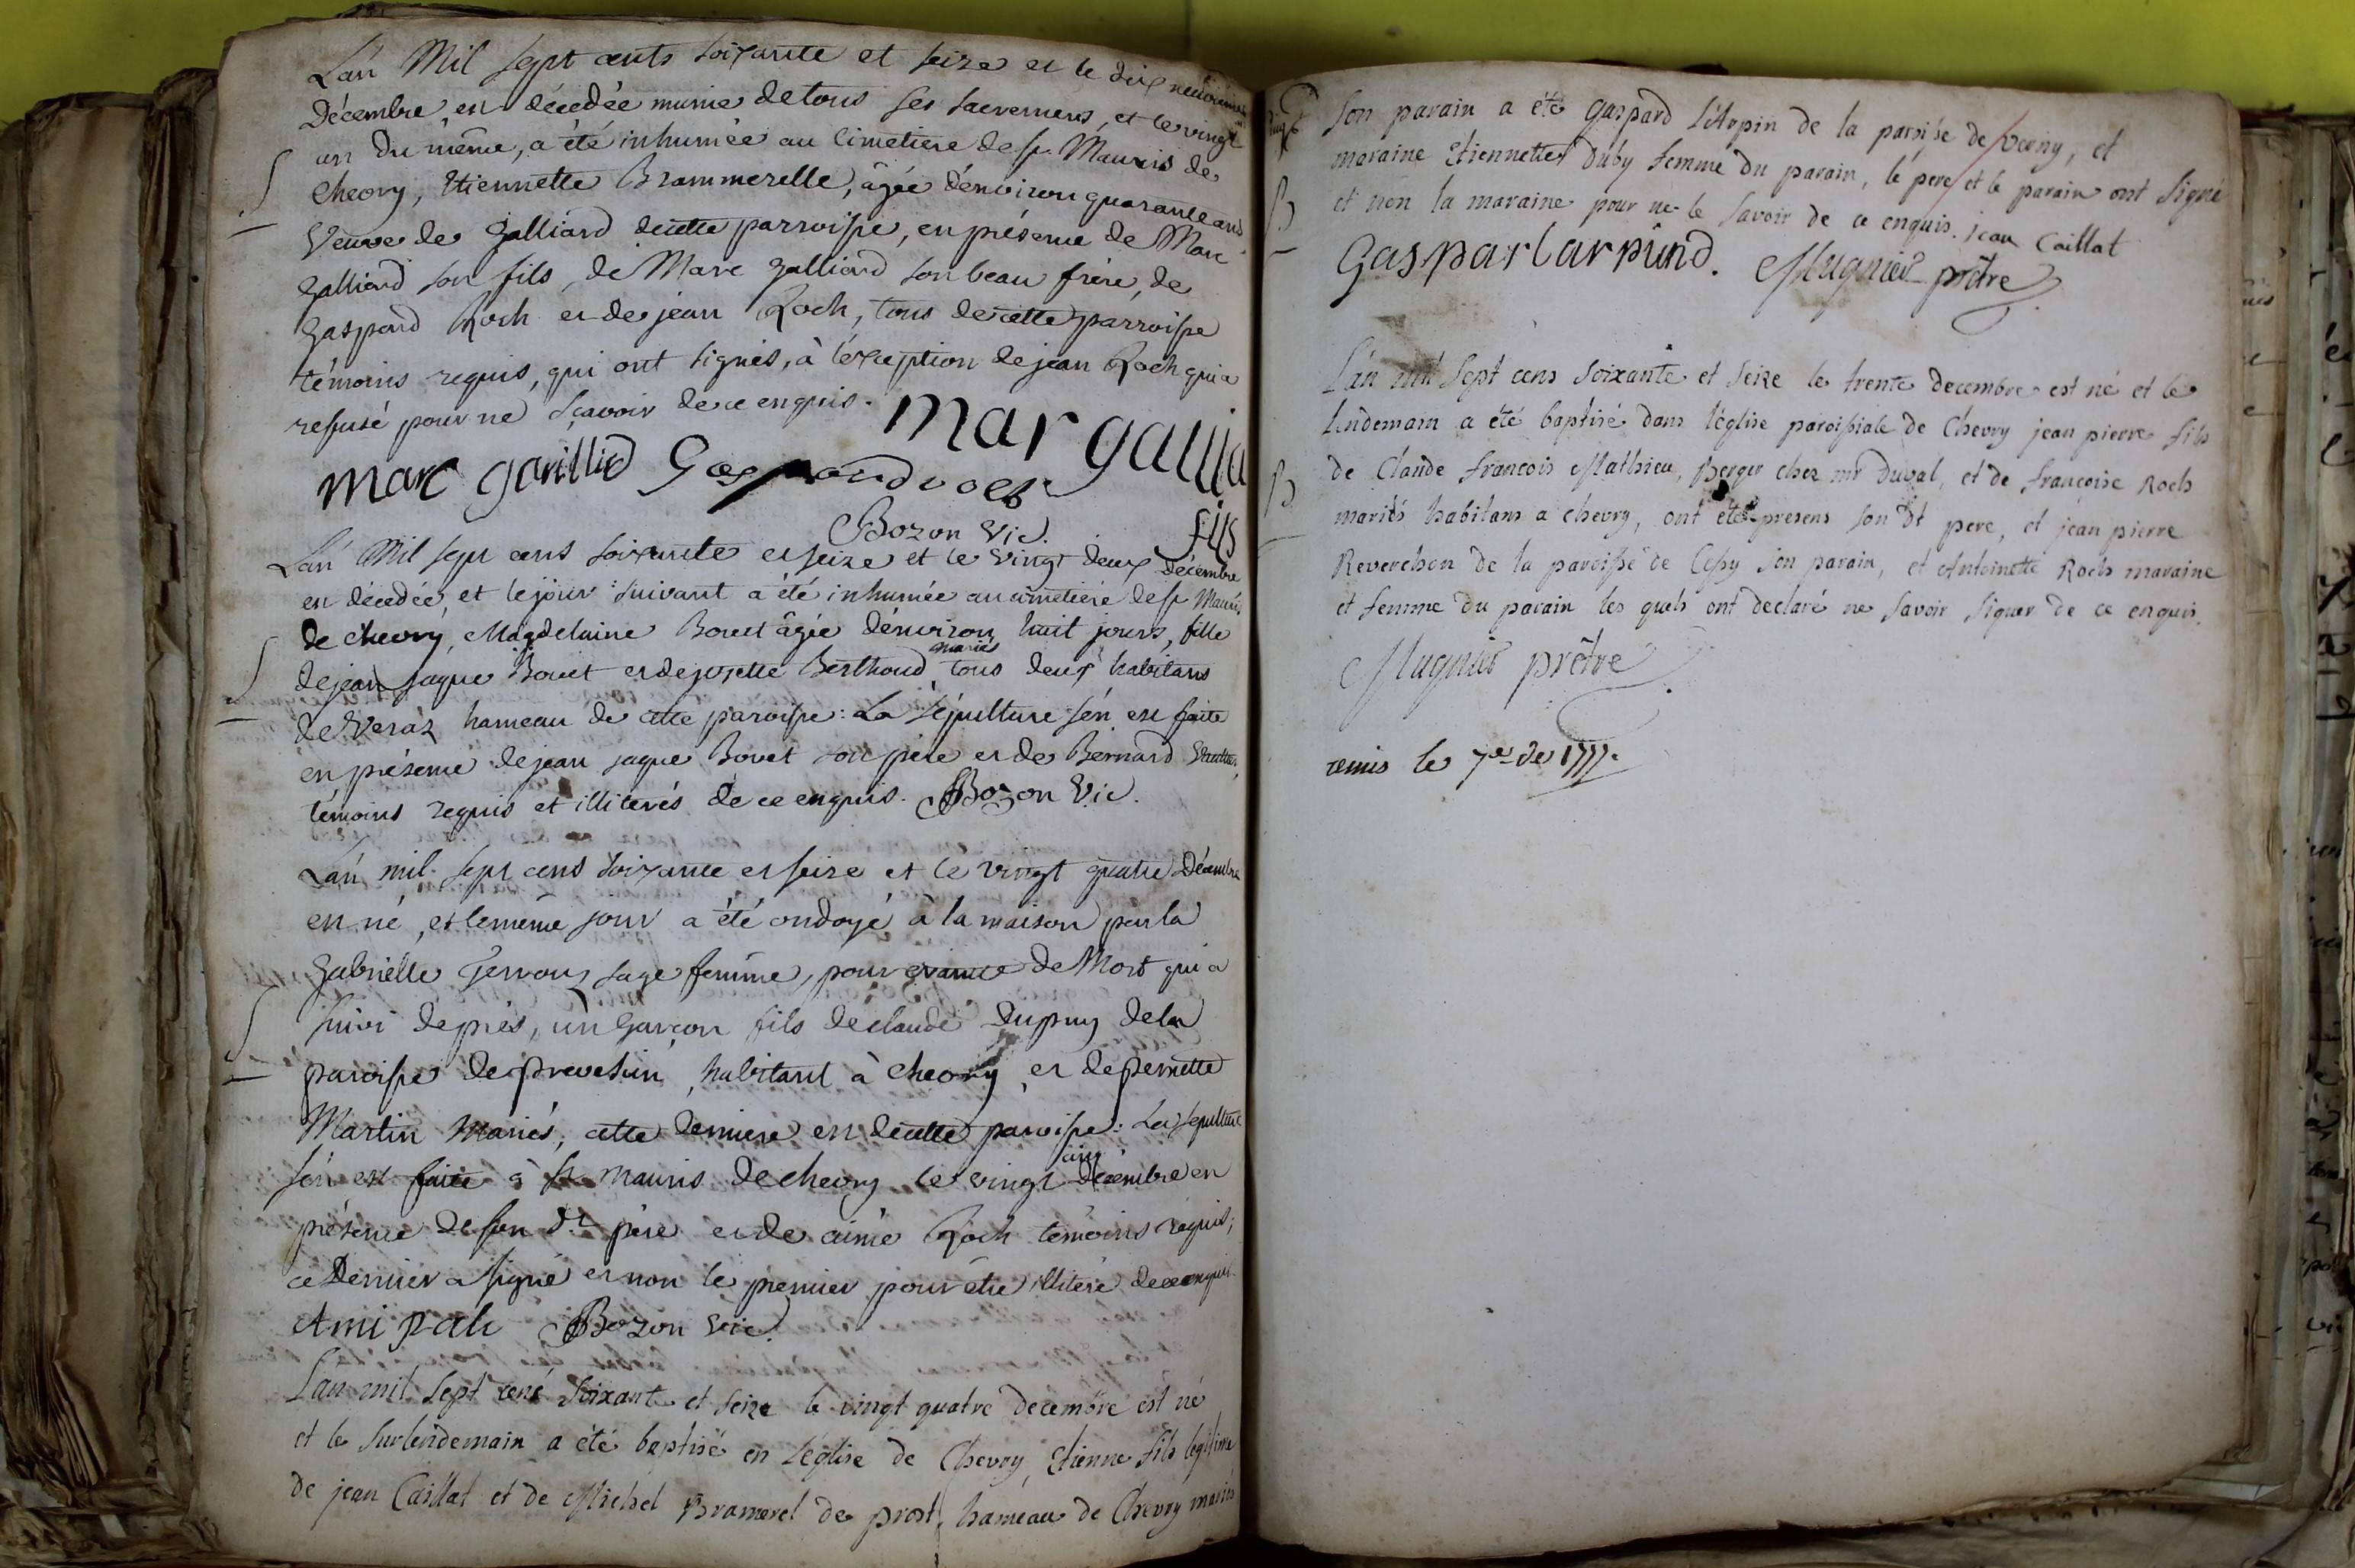 L'án Mil sept cents soixante et seize et le dix neuvieme
Décembre, est décedée munie de tous ses sacremens, et le vingt
un du même, a été inhumée au cimetiere de st Mauris de
Cheory, Etiennette Brammerelle, âgée d'environ quarante ans
Veuve de galliard de cette parroisse, en présence de Marc
galliard son fils, de Marc galliard son beau frère, de
gaspard Roch et de jean Roch, tous de cette parroisse
témoins requis, qui ont signés, à l'exception de jean Roch qui a
refusé pour ne sçavoir de ce enquis.
mar gallia
marc garillid Gaspard roch
fils
Bozon Vic.
L'án Mil sept cens soixante et seize et le vingt deux décembre
est décedée, et le jour suivant a été inhumée au cimetiere de st Mauris
de chevry, Magdelaine Bouet âgée d'environ huit jours, fille
de jean jaque Bouet et de josette Berthoud mariés tous deux habitans
de Veraz hameau de cette paroisse : La sépulture s'en est faite
en présence de jean jaque Bouet son père et de Bernard
témoins requis et illiterés de ce enquis. Bozon Vic.
L'án mil sept cens soixante et seize et le vingt quatre Décembre
est né, et le même jour a été ondoyé à la maison par la
gabrielle Gervaiz sage femme, pour crainte de Mort qui a
suivi de près, un garçon fils de claude Dupuy de la
paroisse de prevessin, habitant à cheory, et de pernette
Martin Mariés, cette derniere est de cette paroisse : La sepulture
s'en est faite à st mauris de chevry le vingt cinq decembre en
présence de son dt père et de aimé Roch témoins requis,
ce Dernier a signé et non le premier pour être illiteré de ce enquis.
Ami rah Bozon Vic.
L'an mil sept cens soixante et seize le vingt quatre decembre est né
et le surlendemain a été baptisé en l'église de Chevry, Etienne fils legitime
de jean Caillat et de Michel Bramerel de prost, hameau de Chevry mariés
Son parain a été gaspard L'Arpin de la paroisse de Verny, et
maraine Etiennette Duby femme du parain, le pere et le parain ont signé
B
et non la maraine pour ne le savoir de ce enquis. jean Caillat
Gaspar larpind. Mugnier prêtre
L'án mil sept cens soixante et seize le trente decembre est né et le
lendemain a été baptisé dans l'église paroissiale de Chevry jean pierre fils
de Claude françois Mathieu, Berger chez mr Duval, et de françoise Roch
B
mariés habitans a chevry, ont été presens son dt pere, et jean pierre
Reverchon de la paroisse de Cessy son parain, et Antoinette Roch maraine
et femme du parain les quels ont declaré ne savoir signer de ce enquis.
Mugnier prêtre
remis le 7er de 1777.